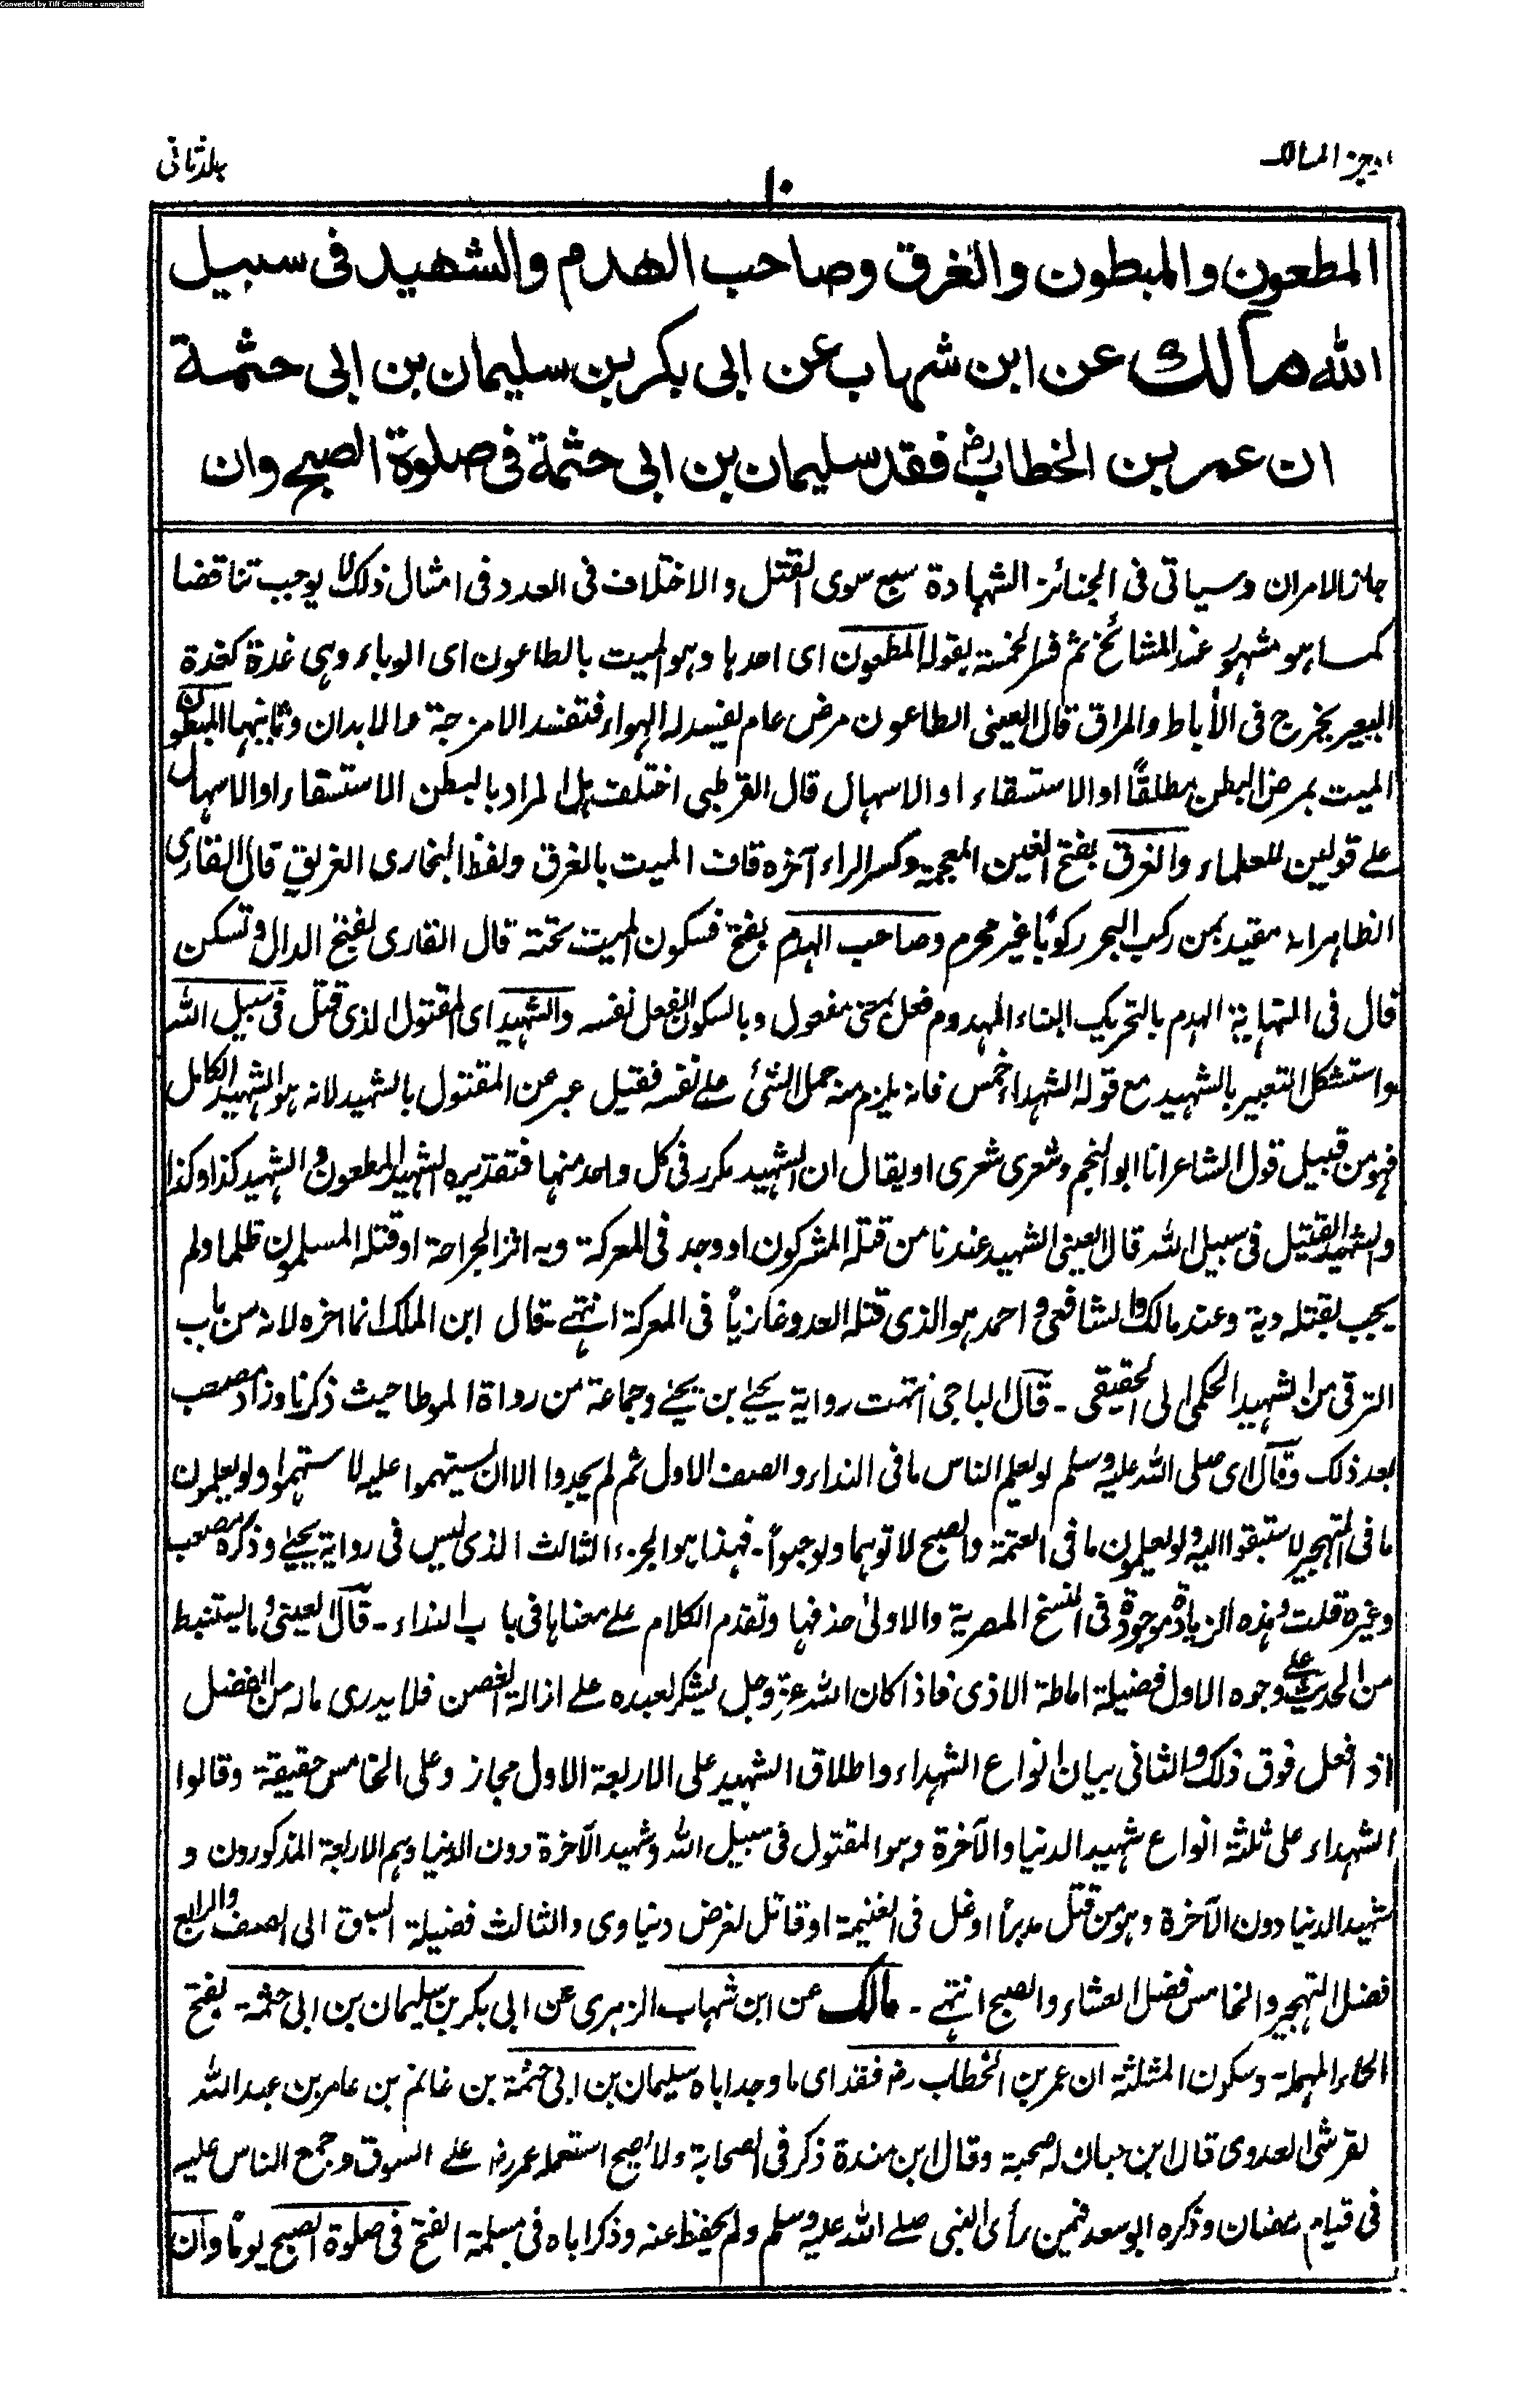 Converted by Tiff Combine - unregistered
اوجز المسالك
١٠
جلد ثانی
المطعون والمبطون والغرق وصاحب الهدم والشهيد فی سبيل
الله مالك عن ابن شهاب عن ابی بكر بن سليمان بن ابی حثمة
ان عمر بن الخطابؓ فقد سليمان بن ابی حثمة فی صلوة الصبح وان
جاز الامران وسياتی فی الجنائز الشهادة سبع سوی القتل والاختلاف فی العدد فی امثال ذلك لا يوجب تناقضا
كما هو مشهور عند المشائخ ثم فسر الخمسة بقوله المطعون ای احدها وهو الميت بالطاعون ای الوباء وهی غدة كغدة
البعير يخرج فی الأباط والمراق قال العينی الطاعون مرض عام يفسد له الهواء فتفسد الامزجة والابدان وثانيها المبطون
الميت بمرض البطن مطلقًا او الاستسقاء او الاسهال قال القرطبی اختلف هل المراد بالبطن الاستسقاء او الاسهال
علے قولين للعلماء والغرق بفتح الغين المعجمة وكسر الراء آخره قاف الميت بالغرق ولفظ البخاری الغريق قال القاری
الظاهر انه مقيد بمن ركب البحر ركوبًا غير محرم وصاحب الهدم بفتح فسكون الميت تحته قال القاری بفتح الدال وتسكن
قال فی النهاية الهدم بالتحريك البناء المهدوم فعل بمعنی مفعول وبالسكون الفعل نفسه والشهيد ای المقتول الذی قتل فی سبيل الله
واستشكل التعبير بالشهيد مع قوله الشهداء خمس فانه يلزم منه حمل الشئ علے نفسه فقيل عبر عن المقتول بالشهيد لانه هو الشهيد الكامل
فهو من قبيل قول الشاعر انا ابو النجم وشعری شعری او يقال ان الشهيد مكرر فی كل واحد منها فتقديره الشهيد المطعون والشهيد كذا وكذا
والشهيد القتيل فی سبيل الله قال العينی الشهيد عندنا من قتله المشركون او وجد فی المعركة وبه اثر الجراحة او قتله المسلمون ظلما ولم
يجب بقتله دية وعند مالك والشافعی واحمد هو الذی قتله العدو غازيًا فی المعركة انتهے - قال ابن الملك انما اخره لانه من باب
الترقی من الشهيد الحكمی الی الحقيقی - قال الباجی انتهت رواية يحيٰے بن يحيٰے وجماعة من رواة الموطا حيث ذكرنا وزاد مصعب
بعد ذلك وقال ای صلی الله عليه وسلم لو يعلم الناس ما فی النداء والصف الاول ثم لم يجدوا الا ان يستهموا عليه لاستهموا ولو يعلمون
ما فی التهجير لاستبقوا اليه ولو يعلمون ما فی العتمة والصبح لاتوهما ولو حبوًا - فهذا هو الجزء الثالث الذی ليس فی رواية يحيٰے وذكره مصعب
وغيره قلت وهذه الزيادة موجودة فی النسخ المصرية والاولیٰ حذفها وتقدم الكلام علے معناها فی باب النداء - قال العينی وما يستنبط
من الحديث علے وجوه الاول فضيلة اماطة الاذی فاذا كان الله عز وجل يشكر لعبده علے ازالة الغصن فلا يدری ماله من الفضل
اذ افعل فوق ذلك والثانی بيان انواع الشهداء واطلاق الشهيد علی الاربعة الاول مجاز وعلی الخامس حقيقة وقالوا
الشهداء علی ثلثة انواع شهيد الدنيا والآخرة وهو المقتول فی سبيل الله وشهيد الآخرة دون الدنيا وهم الاربعة المذكورون و
شهيد الدنيا دون الآخرة وهو من قتل مدبرًا او غل فی الغنيمة او قاتل لغرض دنياوی والثالث فضيلة السبق الی الصف والرابع
فضل التهجير والخامس فضل العشاء والصبح انتهے - مالك عن ابن شهاب الزهری عن ابی بكر بن سليمان بن ابی حثمة بفتح
الحاء المهملة وسكون المثلثة ان عمر بن الخطاب رضہ فقد ای ما وجد اباه سليمان بن ابی حثمة بن غانم بن عامر بن عبد الله
لقرشی العدوی قال ابن حبان له صحبة وقال ابن مندة ذكر فی الصحابة ولا يصح استعمله عمر رضہ علے السوق وجمع الناس عليه
فی قيام رمضان وذكره ابو سعد فيمن رأی النبی صلے الله عليه وسلم ولم يحفظ عنه وذكر اباه فی مسلمة الفتح فی صلوة الصبح يومًا وان